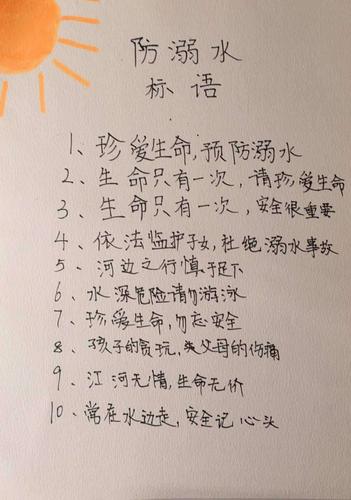 防溺水
标语
1、珍爱生命，预防溺水
2、生命只有一次，请珍爱生命
3、生命只有一次，安全很重要
4、依法监护子女，杜绝溺水事故
5、河边之行慎于足下
6、水深危险请勿游泳
7、珍爱生命，勿忘安全
8、孩子的贪玩，失父母的伤痛
9、江河无情，生命无价
10、常在水边走，安全记心头